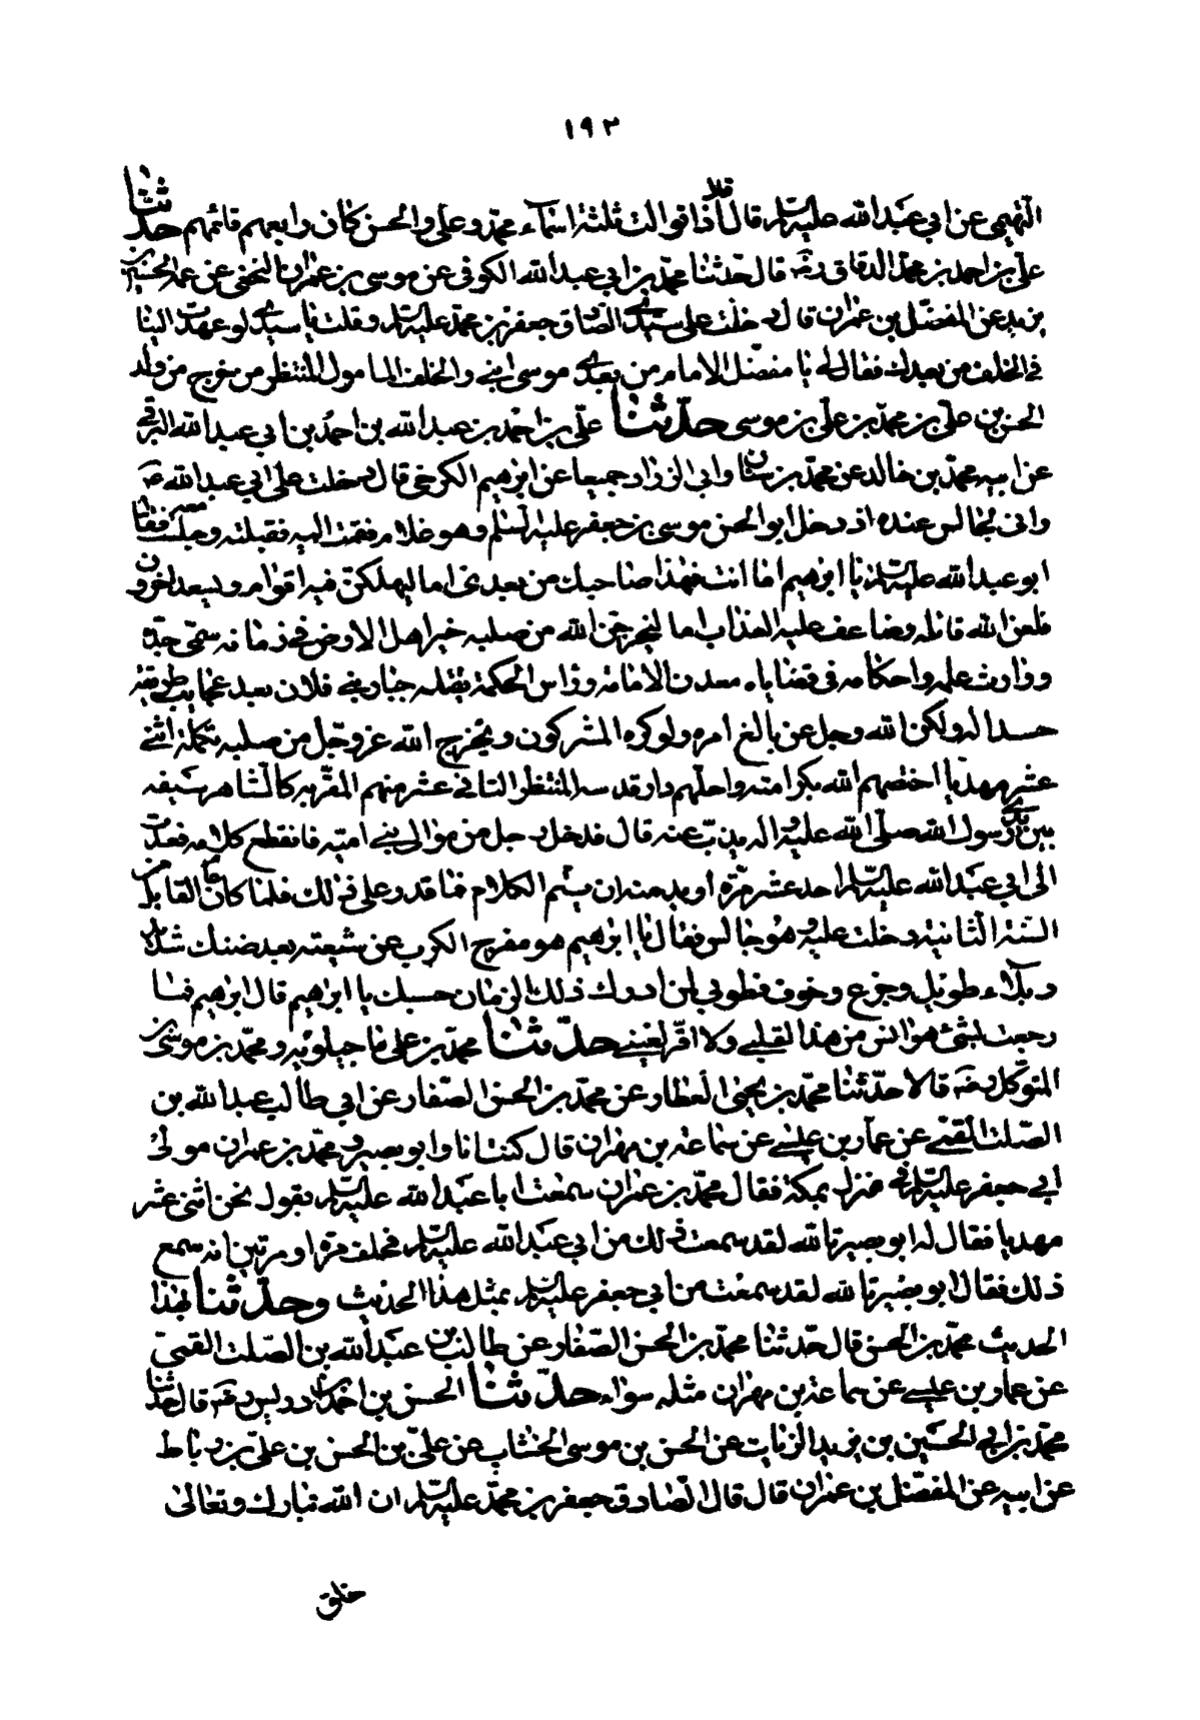 ١٩٢
التميمي عن ابي عبد الله عليه السلام قال اذا توالت ثلثة اسماء محمد وعلي والحسن كان رابعهم قائمهم حدثنا
علي بن احمد بن محمد الدقاق رضه قال حدثنا محمد بن ابي عبد الله الكوفي عن موسى بن عمران النخعي عن عمه الحسين بن
يزيد عن المفضل بن عمران قال دخلت على سيدي الصادق جعفر بن محمد عليه السلام وقلت يا سيدي لو عهدت الينا
في الخلف من بعدك فقال لي يا مفضل الامام من بعدي موسى ابني والخلف المامول المنتظر من ولد
الحسن بن علي بن محمد بن علي بن موسى حدثنا علي بن احمد بن عبد الله بن احمد بن ابي عبد الله البرقي
عن ابيه محمد بن خالد عن محمد بن سنان وابي الزراد جميعا عن ابرهيم الكرخي قال دخلت على ابي عبد الله ع
واني لجالس عنده اذ دخل ابو الحسن موسى بن جعفر عليه السلم وهو غلام فقمت اليه فقبلته وجلست فقال
ابو عبد الله عليه السلام يا ابرهيم اما انت فهذا صاحبك من بعدي اما ليهلكن فيه اقوام ويسعد اخرون
فلعن الله قاتله وضاعف عليه العذاب اما ليخرجن الله من صلبه خير اهل الارض في زمانه سمي جده
ووارث علمه واحكامه في قضاياه معدن الامامة وراس الحكمة يقتله جبار بني فلان بعد عجايب طريفة
حسدا له ولكن الله وجل عز بالغ امره ولو كره المشركون ويخرج الله عز وجل من صلبه تكملة اثني
عشر مهديا اختصهم الله بكرامته واحلهم دار قدسه المنتظر الثاني عشر منهم المقر به كالشاهر سيفه
بين يدي رسول الله صلى الله عليه واله يذب عنه قال فدخل رجل من موالي بني امية فانقطع كلامه فعدت
الى ابي عبد الله عليه السلام احد عشر مرة اريد منه ان يتم الكلام فما قدر على ذلك فلما كان القابل من
السنة الثانية دخلت عليه وهو جالس فقال يا ابرهيم هو مفرج الكرب عن شيعته بعد ضنك شديد
وبلاء طويل وجزع وخوف فطوبى لمن ادرك ذلك الزمان حسبك يا ابرهيم قال ابرهيم فما
رجعت بشيء هو انس من هذا لقلبي ولا اقر لعيني حدثنا محمد بن علي ماجيلويه ومحمد بن موسى بن
المتوكل رضه قالا حدثنا محمد بن يحيى العطار عن محمد بن الحسن الصفار عن ابي طالب عبد الله بن
الصلت القمي عن عمار بن عيسى عن سماعة بن مهران قال كنت انا وابو بصير ومحمد بن عمران مولى
ابي جعفر عليه السلام في منزل بمكة فقال محمد بن عمران سمعت ابا عبد الله عليه السلام يقول نحن اثني عشر
مهديا فقال له ابو بصير تالله لقد سمعت ذلك من ابي عبد الله عليه السلام فحلف مرة او مرتين انه سمع
ذلك فقال ابو بصير تالله لقد سمعت من ابي جعفر عليه السلام بمثل هذا الحديث وحدثنا بهذا
الحديث محمد بن الحسن قال حدثنا محمد بن الحسن الصفار عن طالب بن عبد الله بن الصلت القمي
عن عمار بن عيسى عن سماعة بن مهران مثله سواء حدثنا الحسن بن احمد بن ادريس رضه قال حدثنا
محمد بن ابي الحسين بن يزيد الزيات عن الحسن بن موسى الخشاب عن علي بن الحسن بن علي بن رباط
عن ابيه عن المفضل بن عمران قال قال الصادق جعفر بن محمد عليه السلام ان الله تبارك وتعالى
خلق